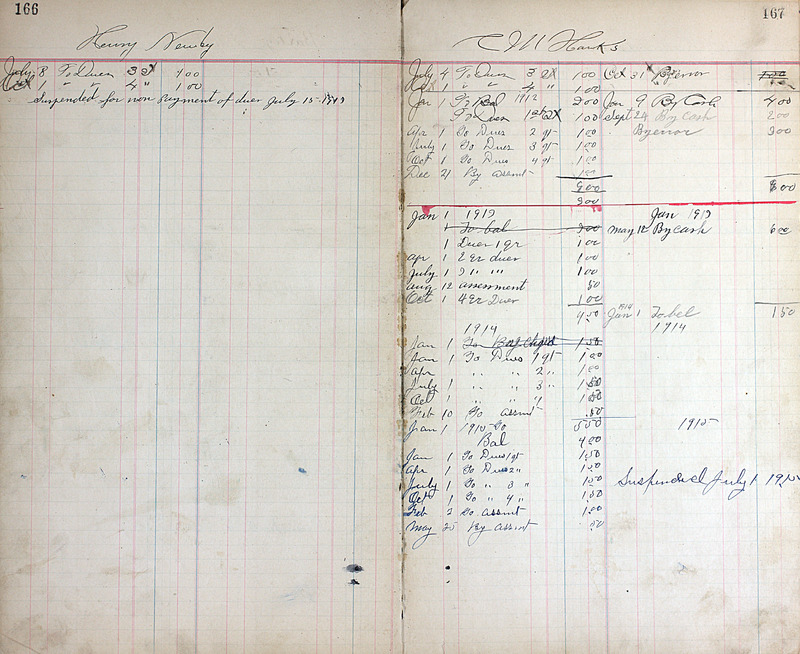 166
Henry Newby
July 8 To Dues 3 1 00
Oct 1 " " 4 " 1 00
Suspended for non payment of dues July 15 1913
167
C M Hanks
July 4 To Dues 3 1 00 Oct 31 By error
Oct 1 " " 4 " 1 00
Jan 1 To Bal 1912 2 00 Jan 9 By Cash 4 00
To Dues 1st 1 00 Sept 24 By Cash 2 00
Apr 1 To Dues 2 qt 1 00 By error
July 1 To Dues 3 qt 1 00
Oct 1 To Dues 4 qt 1 00
Dec 21 By assmt
9 00
Jan 1 1913 Jan 1913
1 To bal 3 00 May 12 By cash 6 00
1 Dues 1 qr 1 00
Apr 1 2 qr dues 1 00
July 1 3 " " 1 00
Aug 12 assessment 50
Oct 1 4 qr Dues 1 00
4 50 1914 Jan 1 To bal 1 50
1914 1914
Jan 1 To Bal 1 50
Jan 1 To Dues 1 qt 1 00
Apr " " 2 " 1 00
July 1 " " 3 "
Oct 1 " " 4
Feb 10 To assmt 50
Jan 1 1915 To 5 50 1915
Bal 4 00
Jan 1 To Dues 1 qt 1 50
Apr 1 To Dues 2 " 1 50
July 1 To " 3 " 1 50 Suspended July 1 1915
Oct 1 To " 4 " 1 50
Feb 2 To assmt 1 00
May 25 By assmt 50